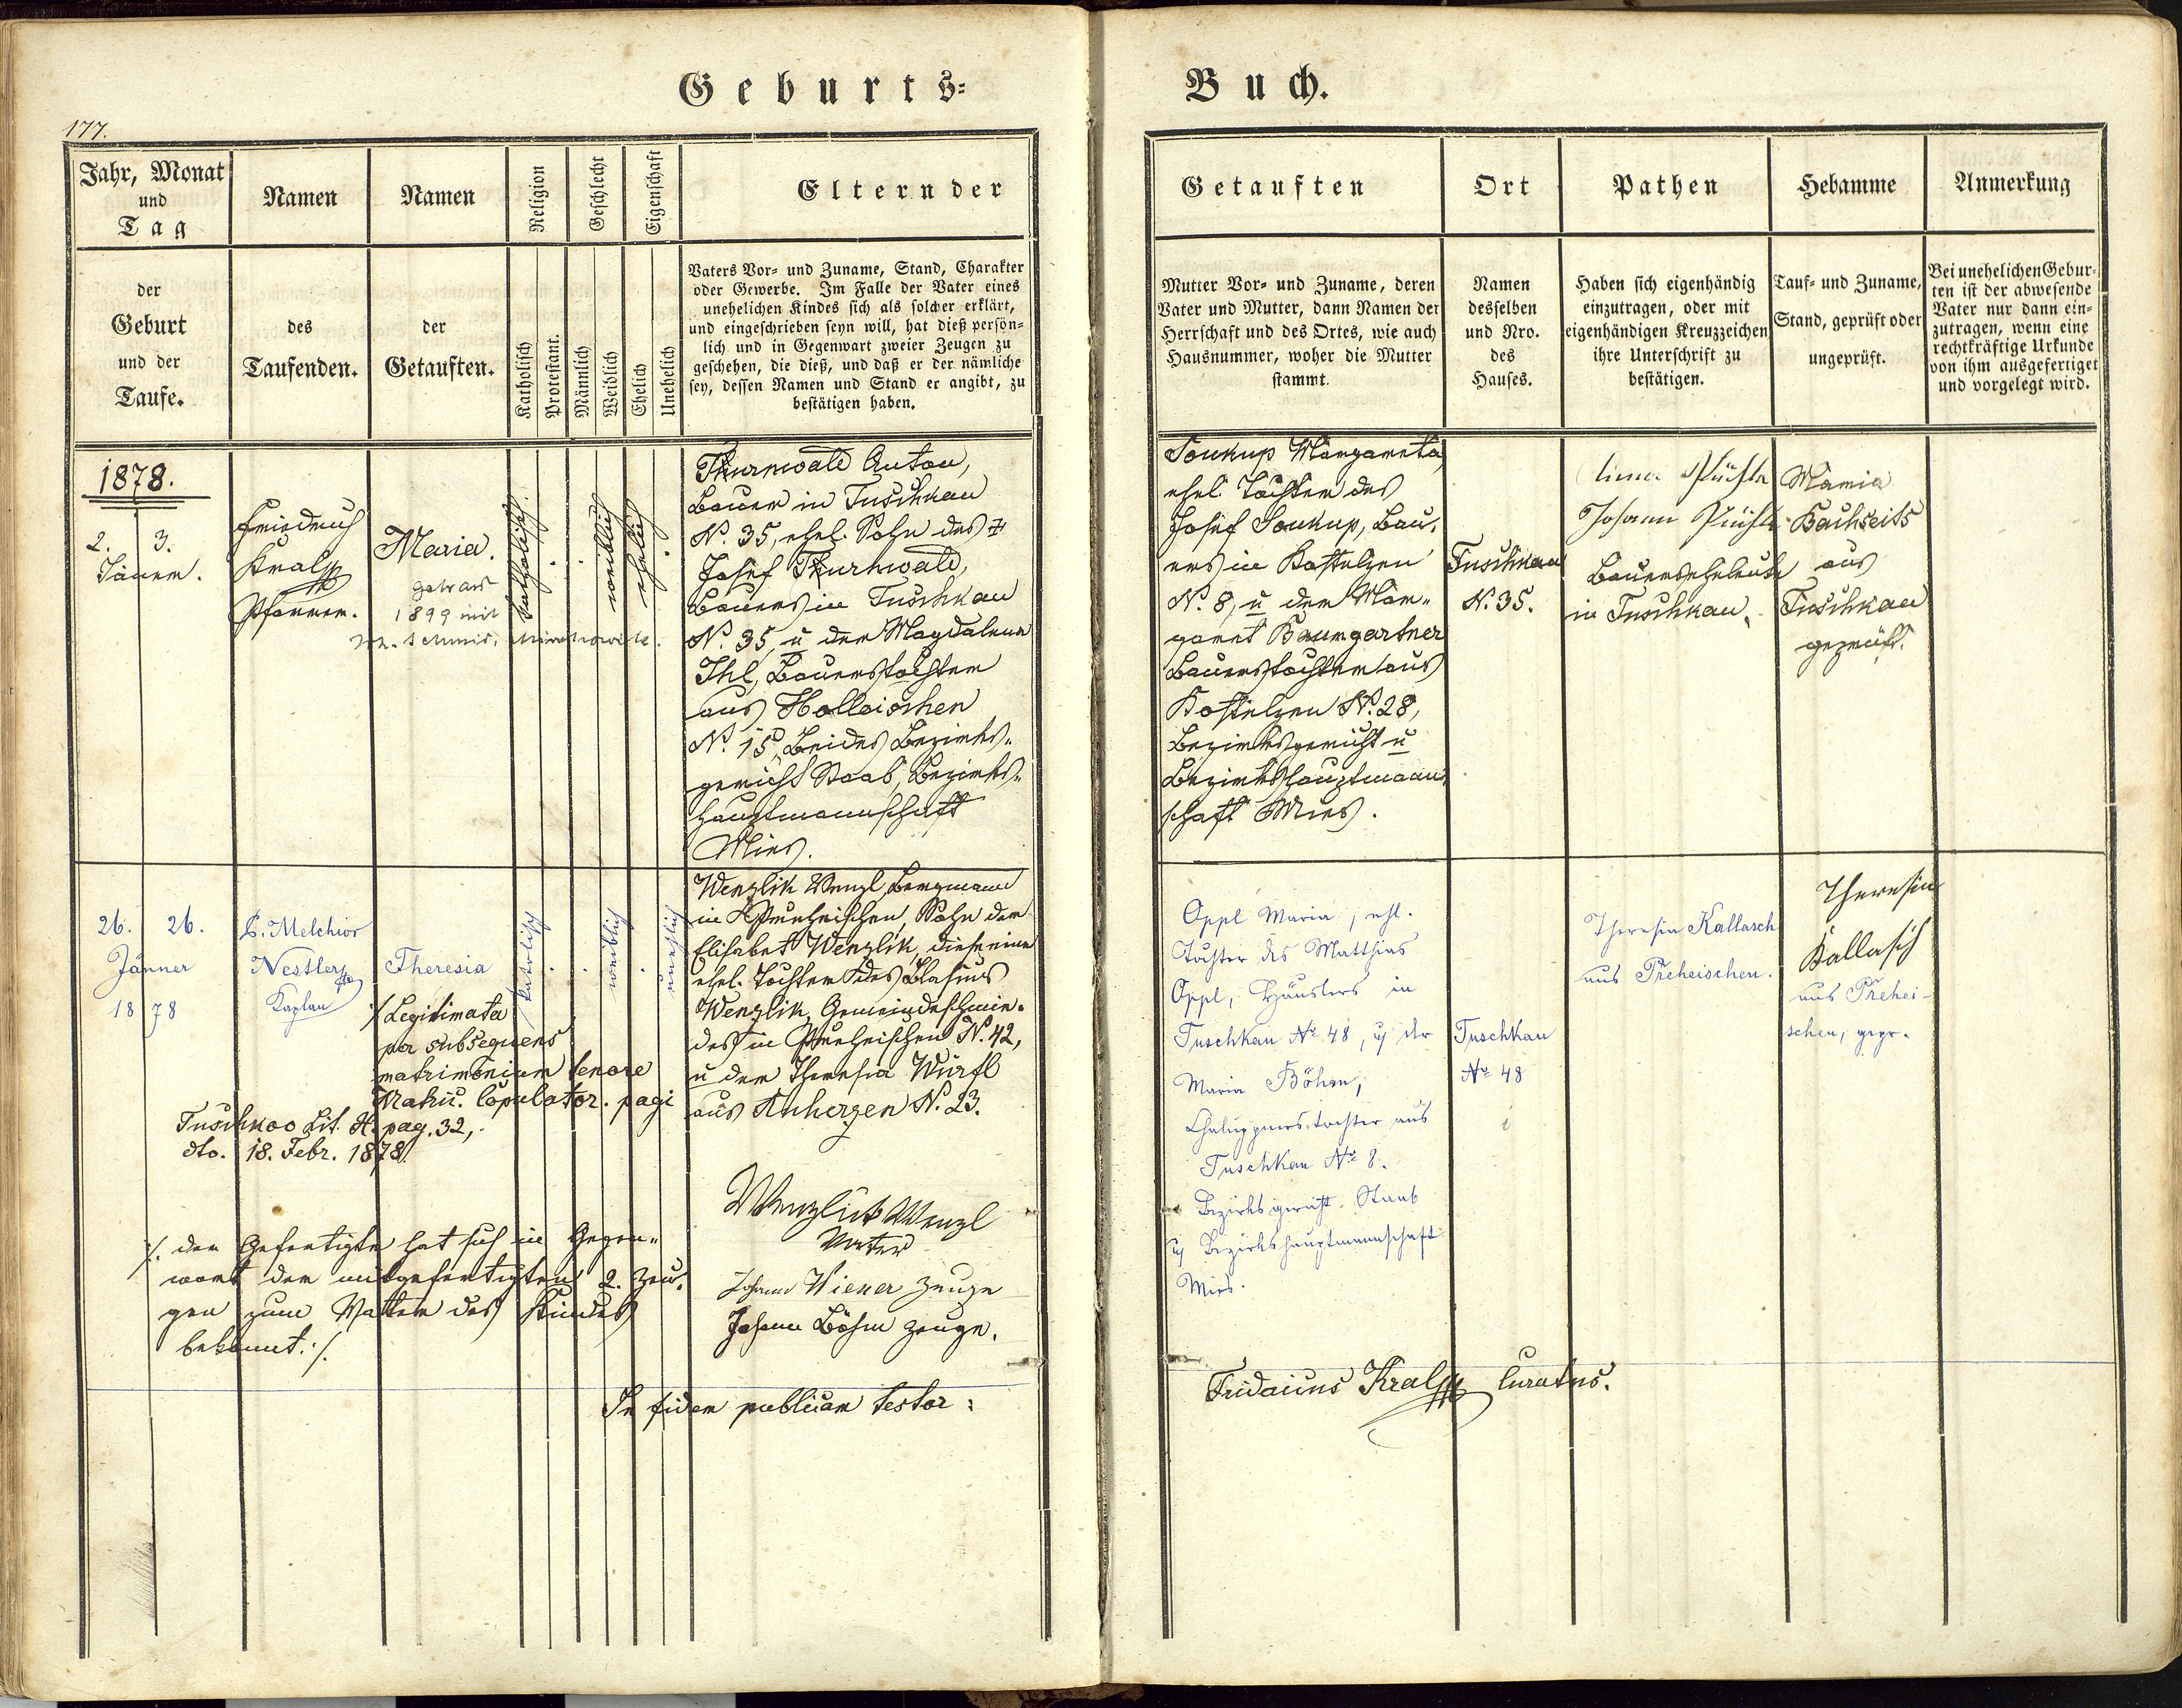 Geburts-
Buch.
177.
Jahr, Monat
und
Tag
der
Geburt
und der
Taufe.
Namen
des
Taufenden.
Namen
der
Getauften.
Religion
Katholisch
Protestant.
Geschlecht
Männlich
Weiblich
Eigenschaft
Ehelich
Unehelich
Eltern der
Vaters Vor- und Zuname, Stand, Charakter
oder Gewerbe. Im Falle der Vater eines
unehelichen Kindes sich als solcher erklärt,
und eingeschrieben seyn will, hat dieß persön-
lich und in Gegenwart zweier Zeugen zu
geschehen, die dieß, und daß er der nämliche
sey, dessen Namen und Stand er angibt, zu
bestätigen haben.
Getauften
Mutter Vor- und Zuname, deren
Vater und Mutter, dann Namen der
Herrschaft und des Ortes, wie auch
Hausnummer, woher die Mutter
stammt.
Ort
Namen
desselben
und Nro.
des
Hauses.
Pathen
Haben sich eigenhändig
einzutragen, oder mit
eigenhändigen Kreuzzeichen
ihre Unterschrift zu
bestätigen.
Hebamme
Tauf- und Zuname,
Stand, geprüft oder
ungeprüft.
Anmerkung
Bei unehelichen Gebur-
ten ist der abwesende
Vater nur dann ein-
zutragen, wenn eine
rechtkräftige Urkunde
von ihm ausgefertiget
und vorgelegt wird.
1878.
2. 3.
Jänner.
Friedrich
Kral
Pfarrer.
Maria.
getraut
1899 mit
M. Schmid,
katholisch.
weiblich
ehelich
Thurnwald Anton,
Bauer in Tuschkau
N. 35, ehel. Sohn des †
Josef Thurnwald,
Bauers in Tuschkau
N. 35, u der Magdalena
Ihl, Bauerstochter
aus Holleischen
N. 15, beides Bezirks-
gericht Staab, Bezirks-
hauptmannschaft
Mies.
Soukup Margareta,
ehel. Tochter des
Josef Soukup, Bau-
ers in Kostelzen
N. 8, u der Mar-
garet Baumgartner
Bauerstochter aus
Kostelzen N. 28,
Bezirksgericht u
Bezirkshauptmann-
schaft Mies.
Tuschkau
N. 35.
Johann
Bauerseheleute
in Tuschkau.
Maria
Bachseits
aus
Tuschkau
geprüft.
26. 26.
Jänner
1878
P. Melchior
Nestler
Kaplan
Theresia
katolisch
weiblich
unehlich
% Legitimata
per subsequens
matrimonium tenore
Matric. Copulator. pagi
Tuschkoo Lit. H. pag. 32,
dto. 18. Febr. 1878.
Wenzlik Wenzl Bergmann
in Preheischen, Sohn der
Elisabet Wenzlik, diese eine
ehel. Tochter des Blasius
Wenzlik, Gemeindeschmie-
des in Preheischen N. 42,
u der Theresia Würfl
aus Anherzen N. 23.
Wenzlik Wenzl
Vater
Johann Wiener Zeuge
Johann Böhm Zeuge.
%. der Gefertigte hat sich in Gegen-
wart der mitgefertigten 2. Zeu-
gen zum Vatter des Kindes
bekannt. %.
Oppl Maria, ehl.
Tochter des Matthias
Oppl, Häuslers in
Tuschkau No 48, u der
Maria Böhm,
Chaluppnerstochter aus
Tuschkau No 8.
Bezirksgericht Staab
u Bezirkshauptmannschaft
Mies.
Tuschkau
No 48
Theresia Kallasch
aus Preheischen.
Theresia
Kallasch
aus Prehei-
schen, gepr.
In fidem publicam testor:
Kral Curatus.